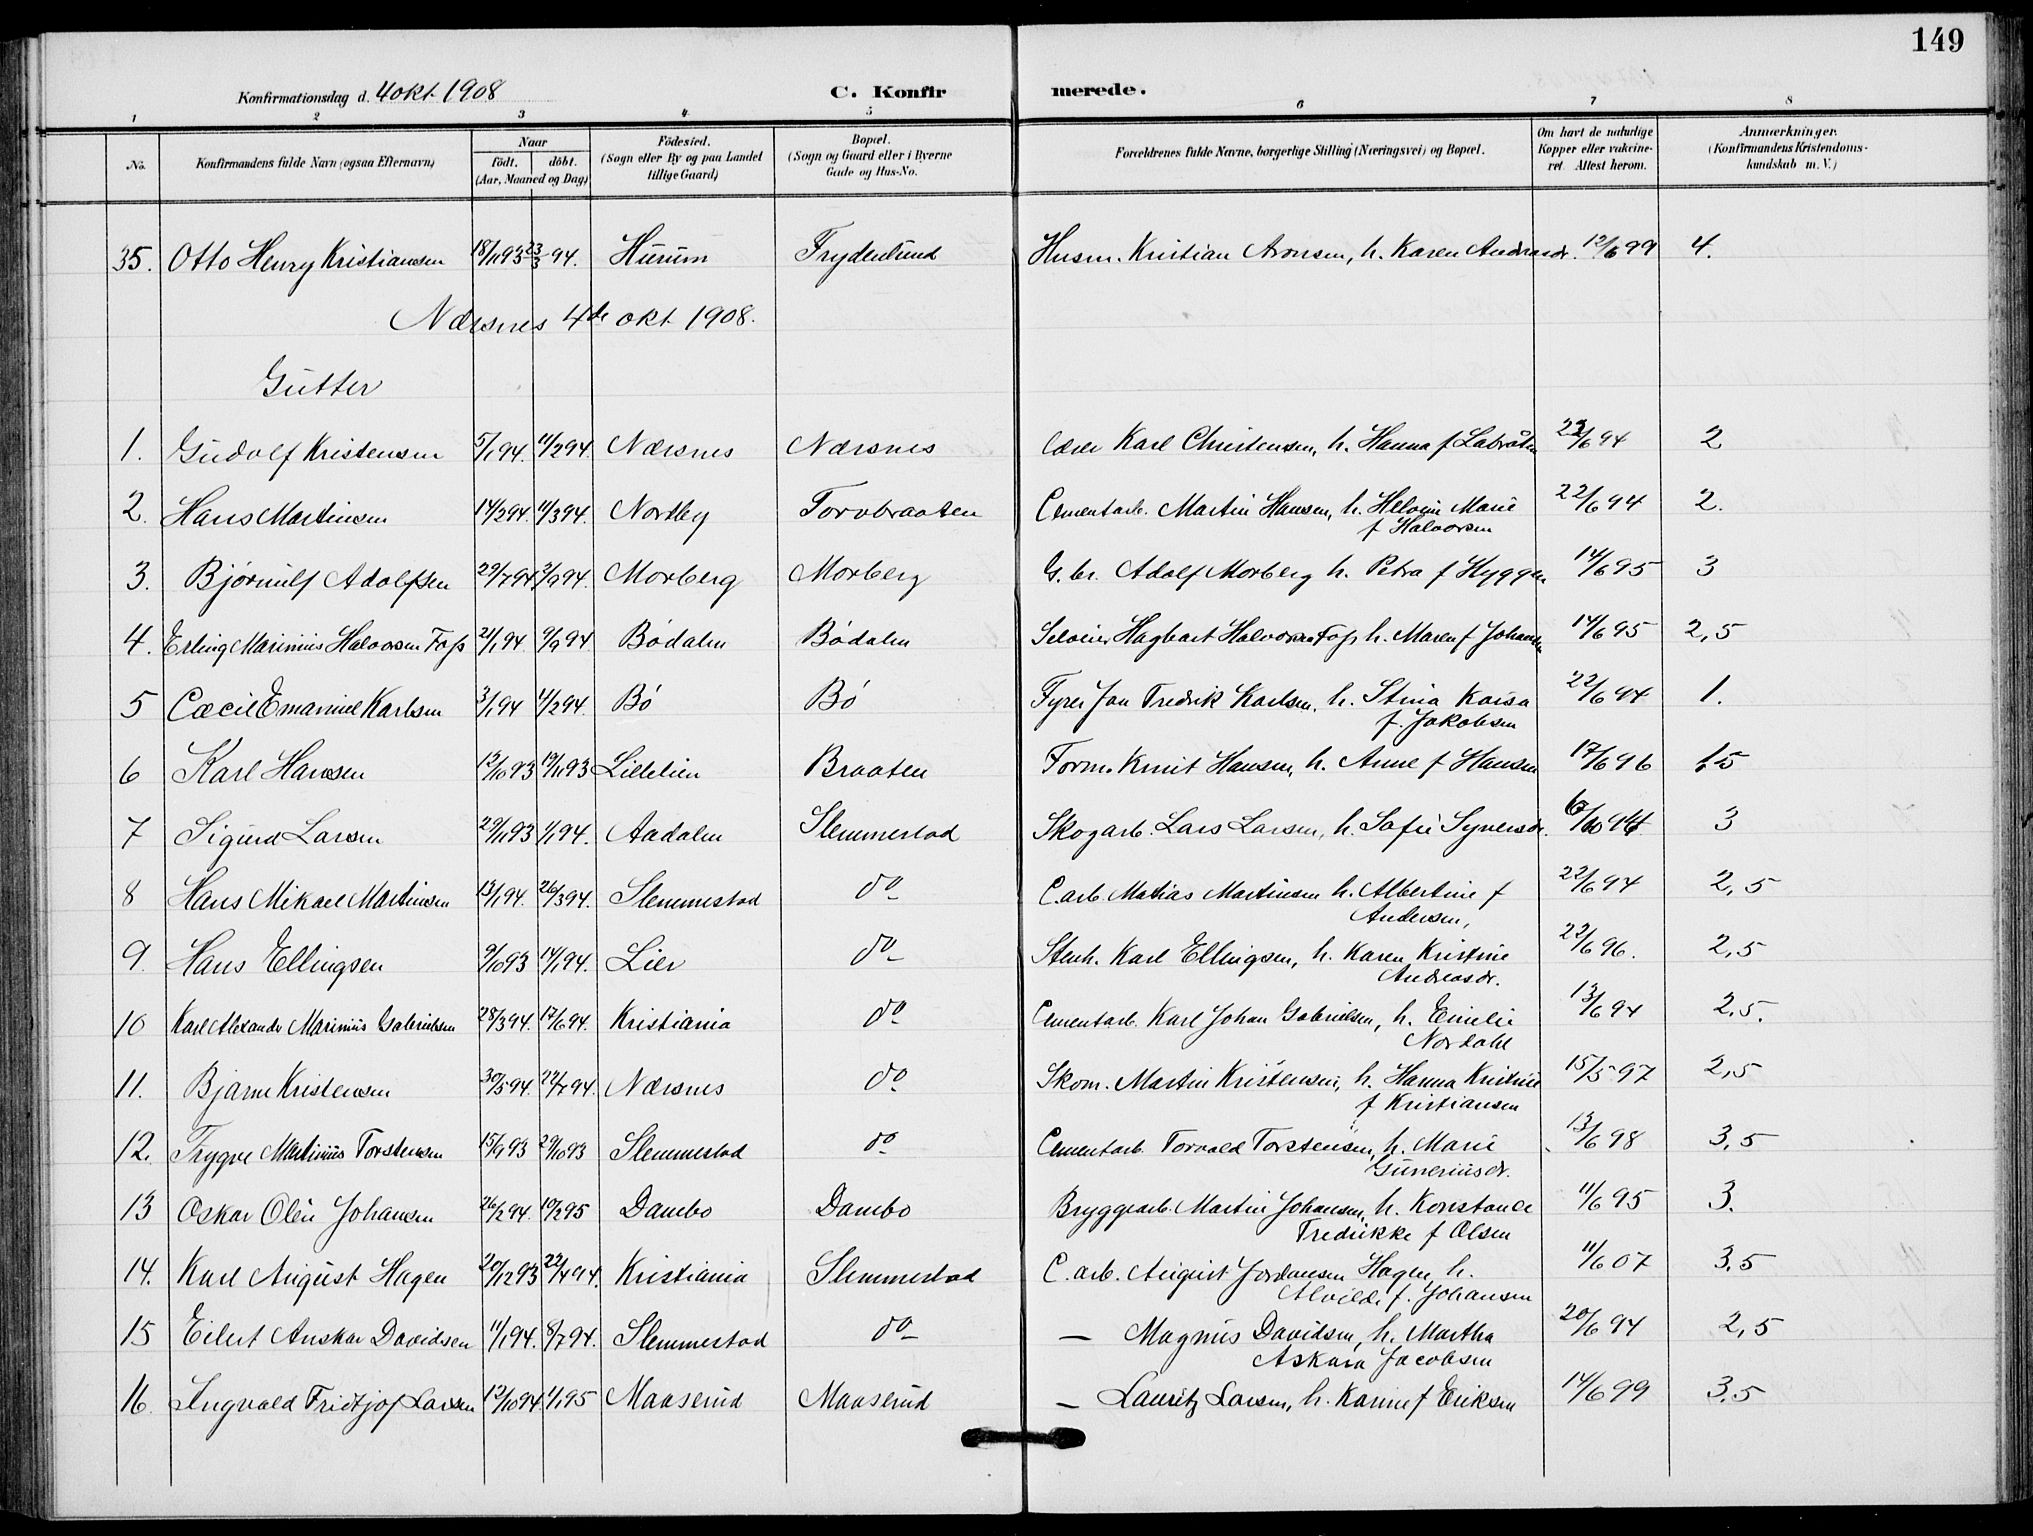 149
Konfirmationsdag d. 4 okt. 1908 C. Konfirmerede.
1 2 3 4 5 6 7 8
No. Konfirmandens fulde Navn (ogsaa Efternavn) Naar født. døbt. (Aar, Maaned og Dag) Fødested. (Sogn eller By og paa Landet tillige Gaard) Bopæl. (Sogn og Gaard eller i Byerne Gade og Hus-No. Forældrenes fulde Navne, borgerlige Stilling (Næringsvei) og Bopæl. Om havt de naturlige Kopper eller vakcineret. Attest herom. Anmærkninger. (Konfirmandens Kristendomskundskab m. V.)
35. Otto Henry Kristiansen 18/11 93 23/3 94. Hurum Frydenlund Husm. Kristian Aronsen, h. Karen Andreasdr. 12/6 99 4.
Nærsnes 4de okt. 1908.
Gutter
1. Gudolf Kristensen 5/1 94. 11/2 94. Nærsnes Nærsnes Lærer Karl Christensen, h. Hanna f Labråten 22/6 94 2
2. Hans Martinsen 14/2 94. 11/3 94. Nordby Torvbraaten Cementarb. Martin Hansen, h. Helvine Marie 22/6 94 2.
f Halvorsen
3. Bjørnulf Adolfsen 29/7 94 2/9 94. Morberg Morberg G.br. Adolf Morberg h. Petra f Hyggen 14/6 95 3
4. Erling Marinius Halvorsen Foss 21/1 94. 9/9 94. Bødalen Bødalen Selveier Hagbart Halvorsen Foss h. Maren f Johansen 14/6 95 2,5
5 Cæcil Emanuel Karlsen 3/1 94 4/2 94. Bø Bø Fyrer Jan Fredrik Karlsen, h. Stina Kaisa 22/6 94 1.
f. Jakobsen
6 Karl Hansen 12/10 93 19/11 93 Lillelien Braaten Form. Knut Hansen, h. Anne f Hansen 17/6 96 1,5
7 Sigurd Larsen 29/11 93 1/1 94. Aadalen Slemmestad Skogarb. Lars Larsen, h. Sofie Syversdr. 6/10 94 3
8 Hans Mikael Martinsen 13/1 94. 26/3 94. Slemmestad do C.arb. Matias Martinsen h. Albertine f 22/6 94 2,5
Andersen,
9. Hans Ellingsen 9/10 93 14/1 94. Lier do Stenh. Karl Ellingsen, h. Karen Kristine 22/6 96. 2,5
Andreasdr.
10 Karl Alexander Marinius Gabrielsen 28/3 94. 17/6 94. Kristiania do Cementarb. Karl Johan Gabrielsen, h. Emilie 13/6 94 2,5.
Nordahl
11. Bjarne Kristensen 30/5 94. 22/7 94. Nærsnes do Skom. Martin Kristensen, h. Hanna Kristine 15/5 97 2,5
f Kristiansen
12. Trygve Martinius Torstensen 15/9 93 29/10 93 Slemmestad do Cementarb. Torvald Torstensen, h. Marie 13/6 98 3,5
Guneriusdr.
13 Oskar Olin Johansen 26/2 94. 10/2 95 Dambo Dambo Bryggearb. Martin Johansen, h. Konstance 11/6 95 3.
Fredrikke f Olsen
14. Karl August Hagen 20/12 93 22/4 94. Kristiania Slemmestad C. arb. August Jordansen Hagen, h. 11/6 07 3,5
Alvilde f. Johansen
15 Eilert Anskar Davidsen 11/1 94. 8/7 94. Slemmestad do — Magnus Davidsen, h. Martha 20/6 94 2,5
Askara Jacobsen
16. Ingvald Fridtjof Larsen 12/10 94. 1/1 95 Maaserud Maaserud — Lauritz Larsen, h. Karine f Eriksen 14/6 99 3,5